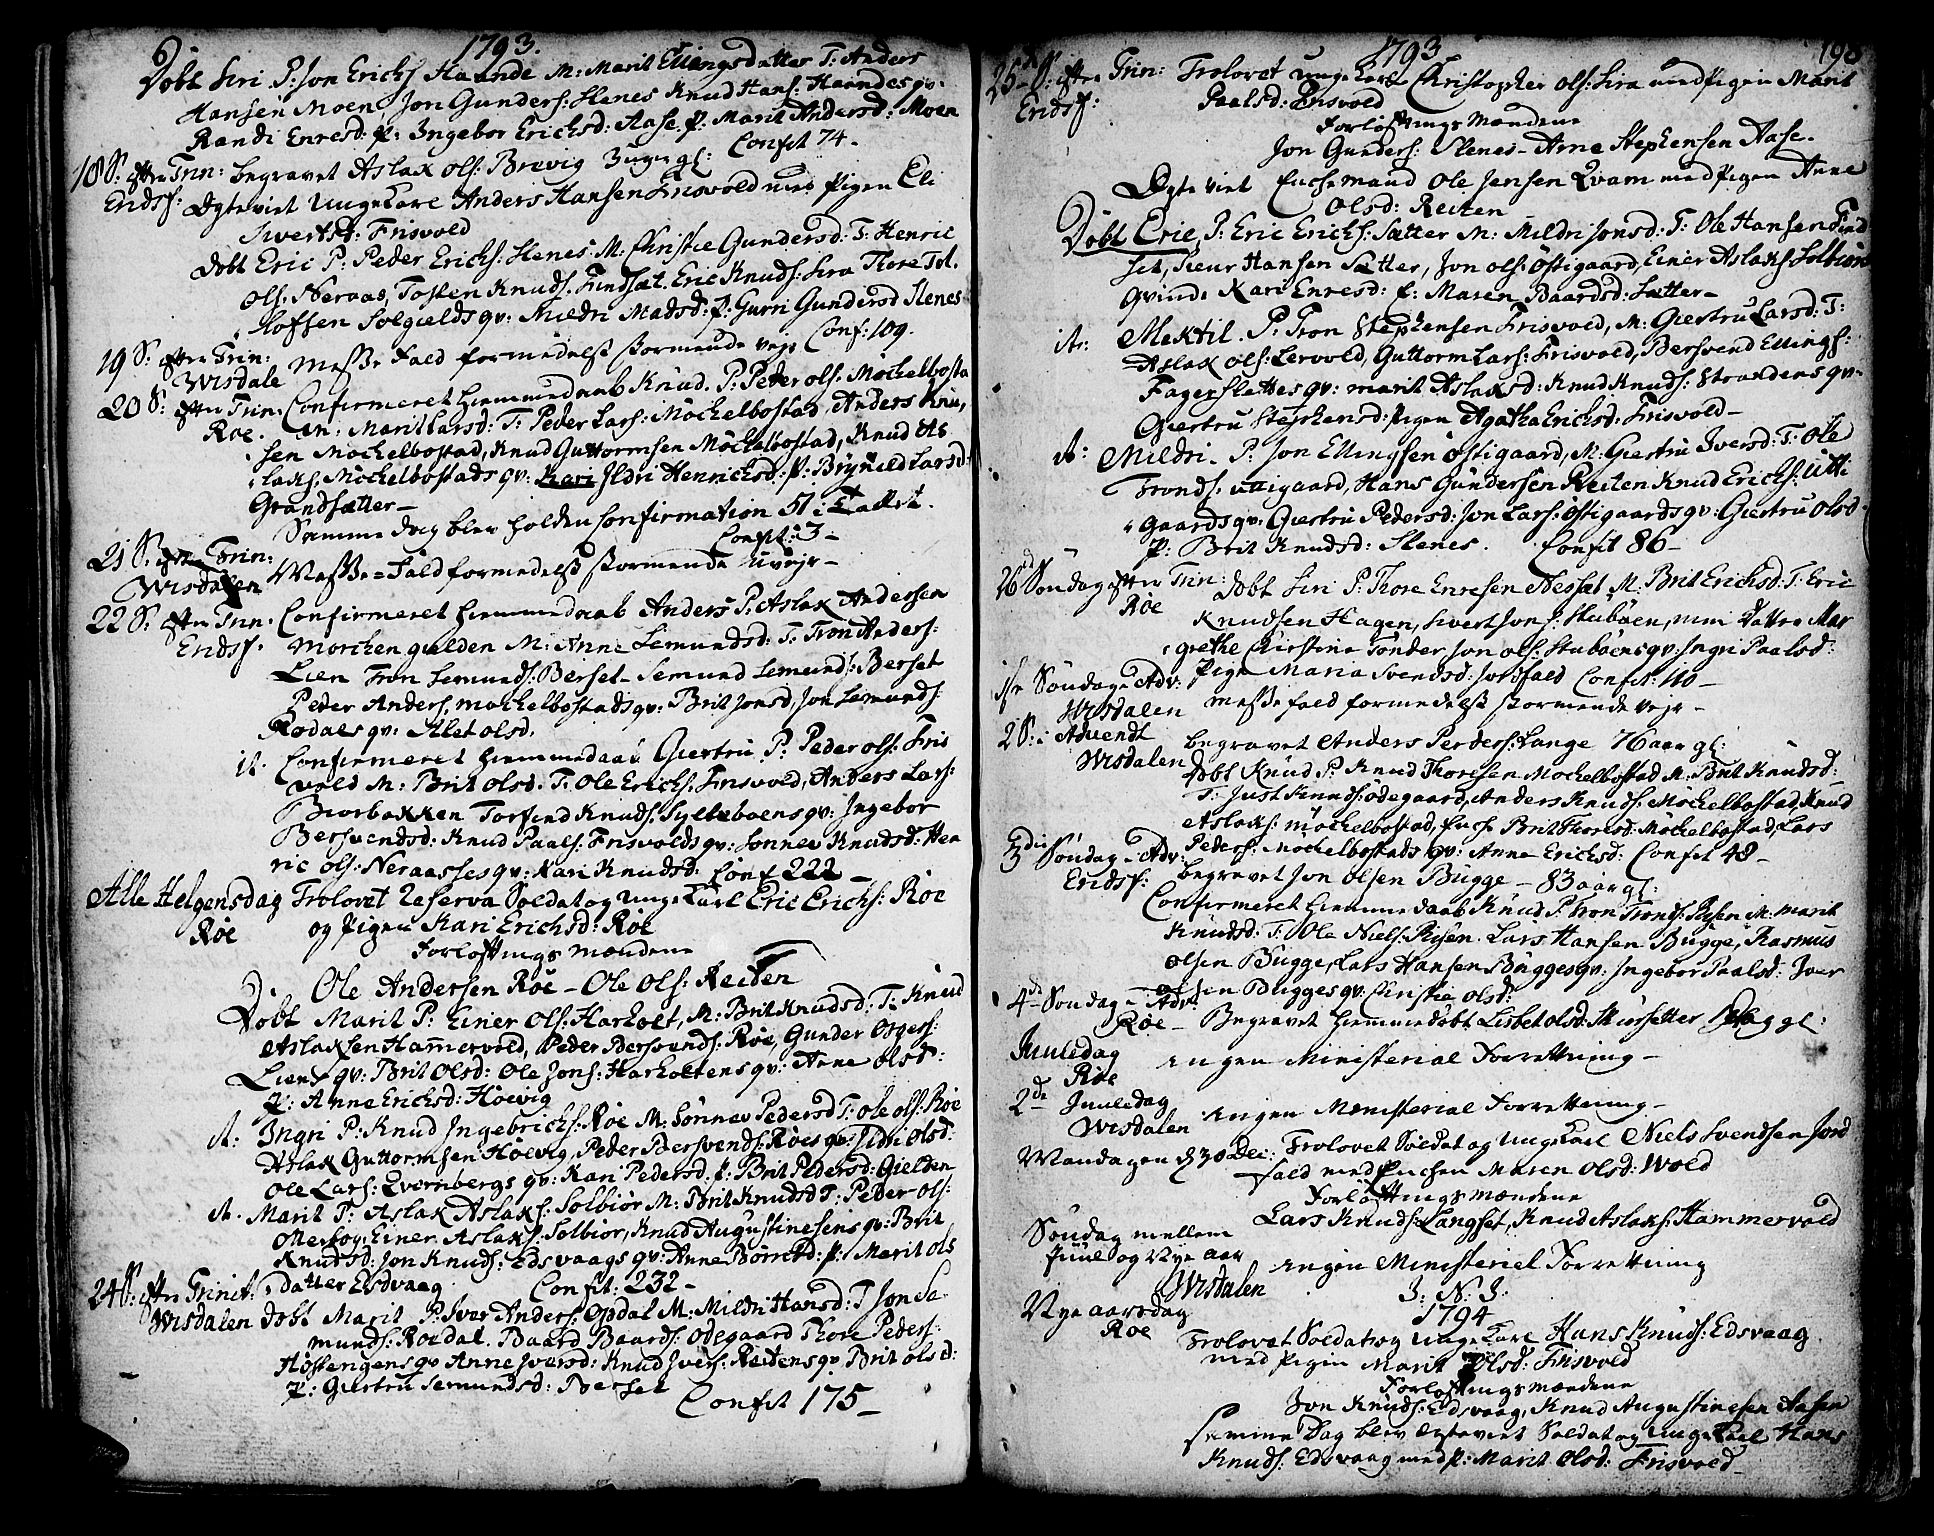 1793.
Döbt Siri P: Jon Erichs: Haande M: Marit Ellingsdatter T: Anders
Hansen Moen Jon Gunders: Slenes Knud Hans: Haandes qv:
Randi Enresd: P: Ingebor Erichsd: Aase P: Marit Andersd: Moen
Confit 74.
18 S: efter Trin: Begravet Aslak Ols: Brevig gl:
Eridsf: Ægteviet Ungekarl Anders Hansen Frisvold med Pigen Eli
Sivertsd: Frisvold
Döbt Eric P: Peder Erichs: Slenes M: Christie Gundersd: T: Henric
Ols: Neraas, Tosten Knuds: Fundsæt. Eric Knuds: Sira Thore Tol-
lofsen Solgields qv: Mildri Madsd: P: Gurri Gundersd Slenes
Conf: 109.
19 S: efter Trin: Messe Fald formedelst stormende vejr
Wisdale
20 S: efter Trin: Confirmeret hiemmedaab Knud. P: Peder Ols: Möchelbosta
Roe. M: Marit Larsd: T: Peder Lars: Möchelbostad, Anders Knu,
sen Mochelbostad, Knud Guttormsen Möchelbostad, Knud As
laks: Möchelbostads qv: Kari Ildri Henrichsd: P: Brynild Larsd:
Grandsætter
Samme dag blev holden Confirmation 51 i Tallet.
Confit: 3
21 S: efter Trin: Messe-Fald formedelst stormende Uvejr
Wisdalen
22 S: efter Trin. Confirmeret hiemmedaab Anders P. Aslak Andersen
Eridsf. Morchengielden M: Anne Semundsd: T: Tron Anders:
Lien Tron Semunds: Berset Semund Semunds: Berset
Peder Anders. mochelbostads qv: Brit Jonsd, Jon Semunds
Rodals qv: Alet Olsd.
it. Confirmeret hiemmedaab Giertru P: Peder Ols: Fris
vold M: Brit Olsd. T: Ole Erichs: Frisvold, Anders Lars:
Biorbakken Torfind Knuds: Sylteboens qv: Ingebor
Bersvendsd: Knud Paals: Frisvolds qv: Sonnev Knudsd: Hen
ric Ols: Neraasses qv: Kari Knudsd: Conf 222
Alle Helgensdag Trolovet Reserva Soldat og Ungekarl Eric Erichs: Röe
Röe og Pigen Kari Erichsd: Röe
Forlöftnings mændene
Ole Andersen Röe - Ole Ols: Reiten
Döbt Marit P: Einer Ols: Harholt, M: Brit Knudsd: T: Knud
Aslaksen Hammervold, Peder Bersvends: Röe, Gunder Asgers:
Liens qv: Brit Olsd: Ole Jons: Harholtens qv: Anne Olsd:
P: Anne Erichsd: Höevig
it: Ingri P: Knud Ingebrichs: Röe M: Sönnev Pedersd T: Ole Ols: Röe
Aslak Guttormsen Höevig, Peder Bersvends: Röes qv: Ildri Olsd:
Ole Lars: Qvernbergs qv: Kari Pedersd. P: Brit Pedersd: Gielden
it. Marit P: Aslak Aslaks: Solbiör M: Brit Knudsd T: Peder Ols:
Otteröy, Einer Aslaks: Solbiör, Knud Augustinesens qv: Brit
Knudsd: Jon Knuds: Edsvaags qv: Anne d: P: Marit Ols
datter Edsvaag Confit: 232
24 S: efter Trinit:
Wisdalen Döbt Marit P: Iver Anders: Opdal M: Mildri Hansd: T Jon Sa-
munds: Roedal. Baard Baards: Ödegaard Thore Peders:
engens qv Anne Iversd: Knud Ivers: Reitens qv Brit Olsd:
P: Giertru Semundsd: Berset
Confit 175
1793
198
25 S: efter Trin: Trolovet Ungekarl Christopher Ols: Sira med Pigen Marit
Eridsf: Paalsd: Frisvold
Forlöftnings Mændene
Jon Gunders: Slenes - Arne Stephensen Aase.
Ægteviet Enchemand Ole Jensen Qvam med Pigen Anne
Olsd: Reiten
Döbt Eric P: Eric Erichs: Sætter M: Mildri Jonsd: T: Ole Hansen Find
set, Siur Hansen Sætter, Jon Ols: Östigaard, Einer Aslaks: Solbiörs
qvinde Kari Enresd: P: Maren Baardsd: Sætter
it: Mektil. P: Tron Stephensen Frisvold, M: Giertru Larsd: T:
Aslak Ols: Lervold, Guttorm Lars: Frisvold, Bersvend Ellings:
Fagerslettes qv: Marit Aslaksd: Knud Knuds: Strandens qv:
Giertru Stephensd: Pigen Agatha Erichsd: Frisvold
it: Mildri. P: Jon Ellingsen Östigaard, M: Giertru Iversd: T: Ole
Tronds. Uttigaard, Hans Gundersen Reiten Knud Erichs: Utti
gaards qv: Giertru Pedersd: Jon Lars: Östigaards qv: Giertru Olsd
P: Brit Knudsd: Slenes. Confit 86
26 Söndag efter Trin: Döbt Siri P: Thore Enresen Nesset M: Brit Erichsd: T: Eric
Röe Knudsen Hagen, Sivert Jons: Stuböen, min Datter Mar
grethe Christina Tönder Jon Ols: Stuböens qv: Ingri Paalsd:
Pige Maria Svendsd: Jordfald Confit: 110
1ste Söndag i Adv: Messe fald formedelst stormende vejr
Wisdalen
2 S: i Advendt Begravet Anders Peders: Lange 76 aar gl:
Wisdalen Döbt Knud P: Knud Thoresen Mochelbostad M: Brit Knudsd:
T: Just Knuds: Ödegaard, Anders Knuds: Möchelbostad, Knud
Aslaks: möchelbostad, Enche Brit Thoresd: Möchelbostad, Lars
Peders: Möchelbostads qv: Anne Erichsd: Confit 48
3die Söndag i Adv: Begravet Jon Olsen Bugge - 83 aar gl:
Eridsf: Confirmeret hiemmedaab Knud P: Tron Tronds: Risen M: Marit
Knudsd: T: Ole Niels: Risen. Lars Hansen Bugge, Rasmus
Olsen Bugge, Lars Hansen Bugges qv: Ingebor Paalsd: Iver
Olsen Bugges qv: Christie Olsd:
4de Söndag i Adv:
Röe Begravet hiemmedöbt Lisbet Olsd: Skiorsetter gl:
Juuledag ingen Ministerial Forrettning
Röe
2de Juuledag ingen Ministerial Forrettning
Wisdalen
Mandagen d 30 Dec: Trolovet Soldat og Ungekarl Niels Svendsen Jord
fald med Enchen Maren Olsd: Wold
Forlöftnings mændene
Lars Knuds: Langset, Knud Aslaks: Hammervold
Söndag mellem
Juul og Nye aar ingen Ministeriel Forrettning
Wisdalen
J. N. J.
1794
Nye aarsdag
Röe Trolovet Soldat og Ungekarl Hans Knuds: Edsvaag
med Pigen Marit Olsd: Frisvold
Forlöftnings mændene
Jon Knuds: Edsvaag, Knud Augustinesen Aasen
Samme Dag blev Ægteviet Soldat og Ungekarl Hans
Knuds: Edsvaag med P: Marit Olsd: Frisvold